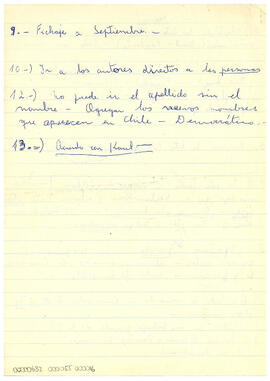 9.- Fichaje a Septiembre.-
10.-) Ir a los autores directos a las personas
12.-) No puede ir el apellido sin el
nombre - Agregar los nuevos nombres
que aparecen en Chile - Democrático.-
13.-)